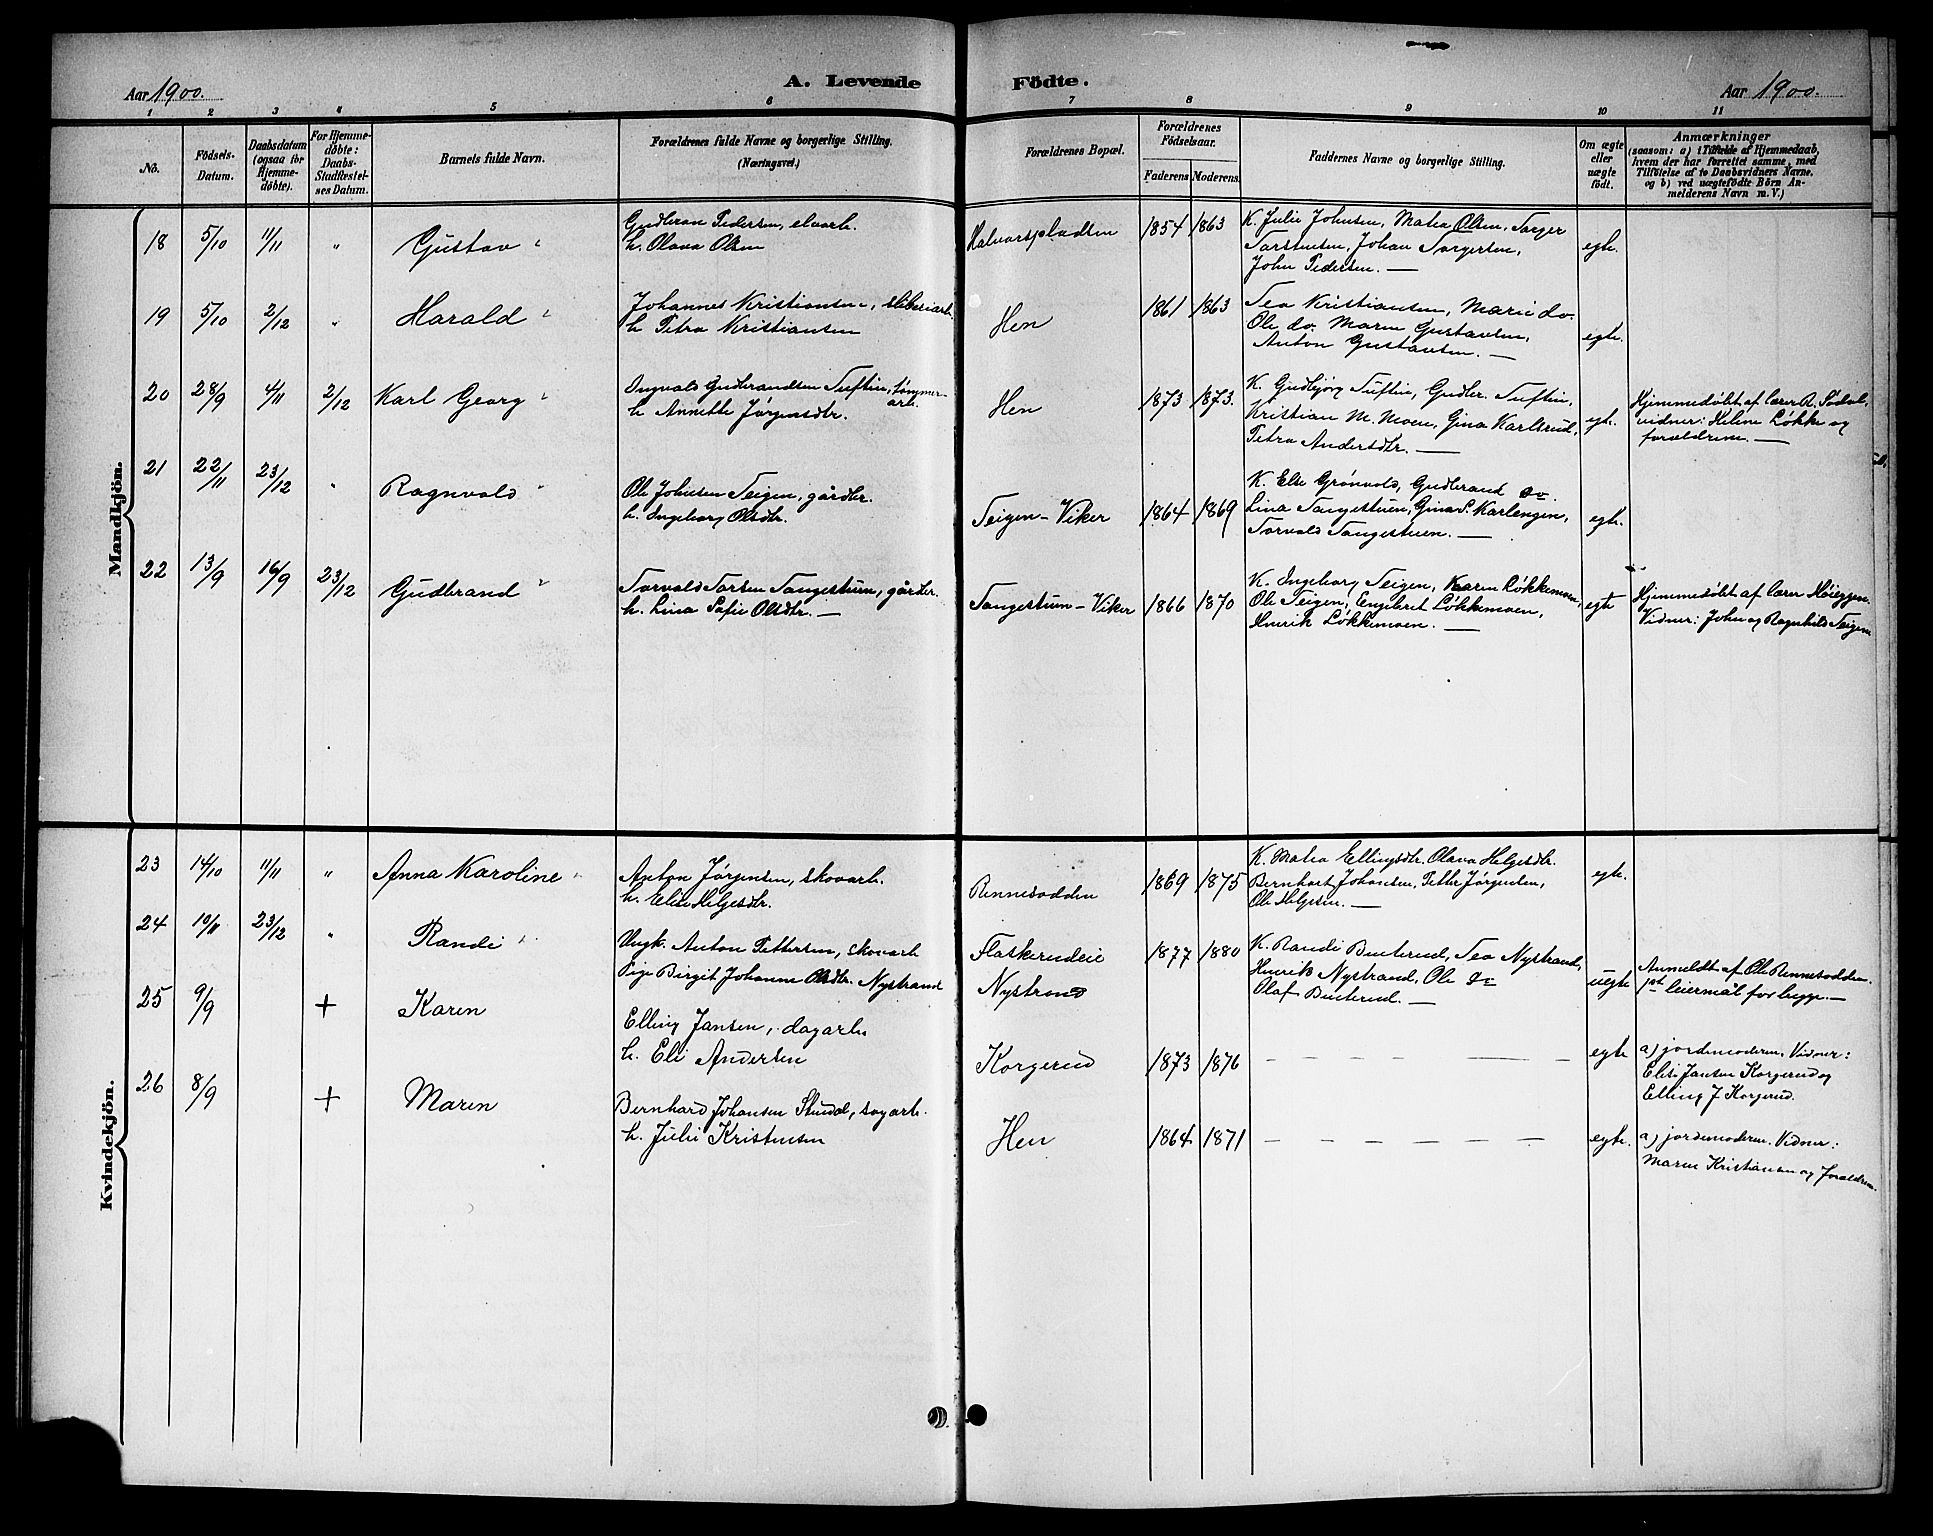 A. Levende Födte.
Aar 1900.
Aar 1900.
1 2 3 4 5 6 7 8 9 10 11
No.
Födsels-
Datum.
Daabsdatum
(ogsaa for
Hjemme-
døbte).
For Hjemme-
döbte:
Daabs-
Stadfæstel-
ses Datum.
Barnets fulde Navn.
Forældrenes fulde Navne og borgerlige Stilling.
(Næringsvei.)
Forældrenes Bopæl.
Forældrenes
Födselsaar.
Faderens
Moderens.
Faddernes Navne og borgerlige Stilling.
Om ægte
eller
uægte
født.
Anmærkninger
(saasom: a) i Tilfælde af Hjemmedaab,
hvem der har forrettet samme, med
Tilföielse af to Daabsvidners Navne,
og b) ved uægtefödte Börn An-
melderens Navn m. V.)
Mandkjön.
18 5/10 11/11 " Gustav
Gudbran Pedersen, elvarb.
h. Olava Olsen
Halvorspladsen 1854 1863
K. Julie Johnsen, Matea Olsen, Torger
Torstensen, Johan Torgersen,
John Pedersen. —
egte.
19 5/10 2/12 " Harald
Johannes Kristiansen, sliberiarb.
h. Petra Kristiansen
Hen 1861 1863
Tea Kristiansen, Marie do.
Ole do. Maren Gustavsen,
Anton Gustavsen. —
egte.
20 28/9 4/11 2/12 Karl Georg
Ingvald Gudbrandsen Tuftin, tømmer-
arb.
h. Annette Jørgensdtr.
Hen 1873 1873.
K. Gudbjørg Tuftin, Gudbr. Tuftin,
Kristian M. Moen, Gina Karlsrud,
Petra Andersdtr. —
egte.
Hjemmedøbt af lærer A. Sødal,
vidner: Helene Løkke og
forældrene. —
21 22/11 23/12 " Ragnvald
Ole Johnsen Teigen, gårdbr.
h. Ingeborg Olsdtr.
Teigen-Viker 1864 1869
K. Else Grønvold, Gudbrand do.
Lina Tangestuen, Gina S. Karlengen,
Torvald Tangestuen. —
egte.
22 13/9 16/9 23/12 Gudbrand
Torvald Torsen Tangestuen, gårdbr.
h. Lina Sofie Olsdtr. —
Tangestuen-Viker 1866 1870
K. Ingeborg Teigen, Karen Løkkemoen,
Ole Teigen, Engebret Løkkemoen,
Henrik Løkkemoen. —
egte
Hjemmedøbt af lærer Høieggen.
Vidner: John og Ragnhild Teigen
Kvindekjön.
23 14/10 11/11 " Anna Karoline
Anton Jørgensen, skovarb.
h. Elise Helgesdtr.
Rennesodden 1869 1875
K. Matea Ellingsdtr. Olava Helgesdtr.
Bernhart Johansen, Petter Jørgensen,
Ole Helgesen. —
egte.
24 10/11 23/12 " Randi
Ungk. Anton Pettersen, skovarb
Pige Birgit Johanne Olsdtr. Nystrand
Flaskerudeie
Nystrand
1877 1880
K. Randi Buterud, Tea Nystrand,
Henrik Nystrand, Ole do
Olaf Buterud. —
uegte
Anmeldt af Ole Rennesodden.
1st leiermål for begge. —
25 9/9 + Karen
Elling Jansen, dagarb.
h. Eli Andersen
Korgerud 1873 1876
— — — — — —
egte
a) jordemoderen. Vidner:
Elise Jansen Korgerud og
Elling J Korgerud.
26 8/9 + Maren
Bernhard Johansen Stendal, sagarb.
h. Julie Kristensen
Hen 1864 1871
— — — — — — —
egte.
a) jordemoderen. Vidner:
Maren Kristiansen og forældrene.